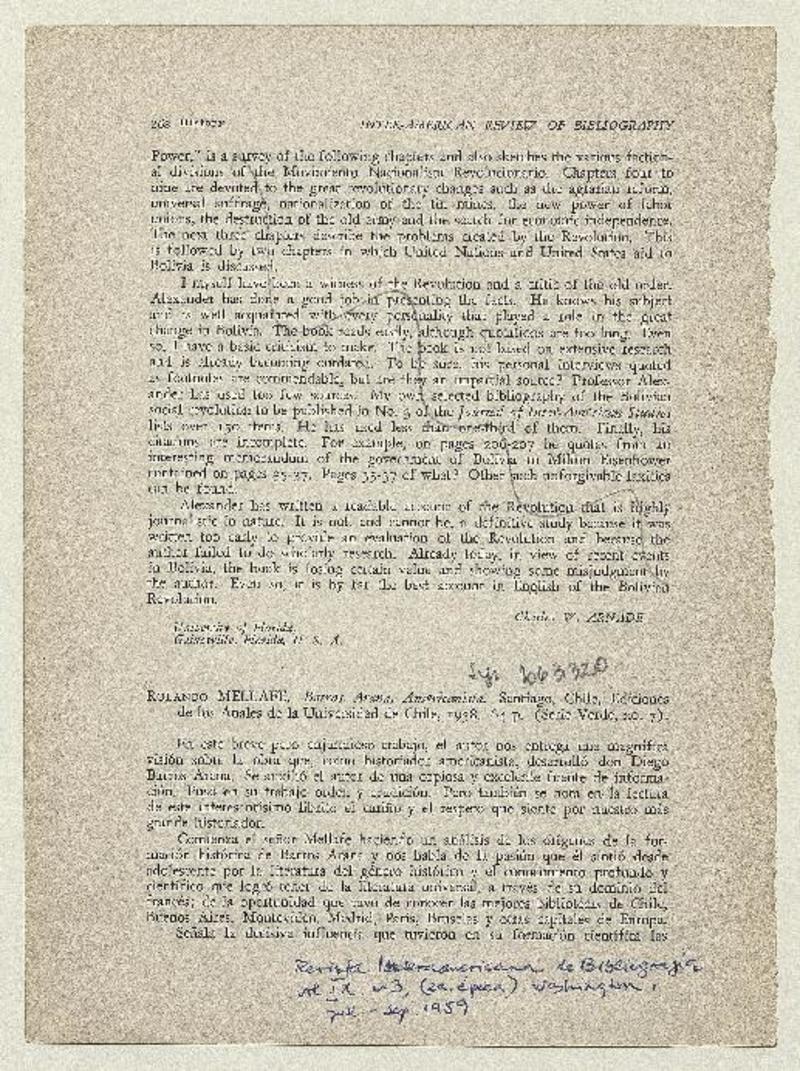 268 History INTER-AMERICAN REVIEW OF BIBLIOGRAPHY
Power," is a survey of the following chapters and also sketches the various faction-
al divisions of the Movimento Nacionalista Revolucionario. Chapters four to
nine are devoted to the great revolutionary changes such as the agrarian reform,
universal suffrage, nationalization of the tin mines, the new power of labor
unions, the destruction of the old army and the search for economic independence.
The next three chapters describe the problems created by the Revolution. This
is followed by two chapters in which United Nations and United States aid to
Bolivia is discussed.
I myself have been a witness of the Revolution and a critic of the old order.
Alexander has done a good job in presenting the facts. He knows his subject
and is well acquainted with every personality that played a role in the great
change in Bolivia. The book reads easily, although quotations are too long. Even
so, I have a basic criticism to make. The book is not based on extensive research
and is already becoming outdated. To be sure, his personal interviews quoted
as footnotes are commendable, but are they an impartial source? Professor Alex-
ander has used too few sources. My own selected bibliography of the Bolivian
social revolution to be published in No. 3 of the Journal of Inter-American Studies
lists over 150 items. He has used less than one-third of them. Finally, his
citations are incomplete. For example, on pages 206-207 he quotes from an
interesting memorandum of the government of Bolivia to Milton Eisenhower
contained on pages 35-37. Pages 35-37 of what? Other such unforgivable laxities
can be found.
Alexander has written a readable account of the Revolution that is highly
journalistic in nature. It is not, and cannot be, a definitive study because it was
written too early to provide an evaluation of the Revolution and because the
author failed to do scholarly research. Already today, in view of recent events
in Bolivia, the book is losing certain value and showing some misjudgment by
the author. Even so, it is by far the best account in English of the Bolivian
Revolution.
Charles W. ARNADE
University of Florida,
Gainesville, Florida, U. S. A.
663320
ROLANDO MELLAFE, Barros Arana, Americanista. Santiago, Chile, Ediciones
de los Anales de la Universidad de Chile, 1958. p. (Serie Verde, no. 7).
En este breve pero enjundioso trabajo, el autor nos entrega una magnífica
visión sobre la obra que, como historiador americanista, desarrolló don Diego
Barros Arana. Se auxilió el autor de una copiosa y excelente fuente de informa-
ción. Puso en su trabajo orden y erudición. Pero también se nota en la lectura
de este interesantísimo librito el cariño y el respeto que siente por nuestro más
grande historiador.
Comienza el señor Mellafe haciendo un análisis de los orígenes de la for-
mación histórica de Barros Arana y nos habla de la pasión que él sintió desde
adolescente por la literatura del género histórico y el conocimiento profundo y
científico que logró tener de la literatura universal, a través de su dominio del
francés; de la oportunidad que tuvo de conocer las mejores bibliotecas de Chile,
Buenos Aires, Montevideo, Madrid, París, Bruselas y otras capitales de Europa.
Señala la decisiva influencia que tuvieron en su formación científica las
Revista Interamericana de Bibliografía
vol IX nº3, (2a. época) Washington,
jul - sep. 1959